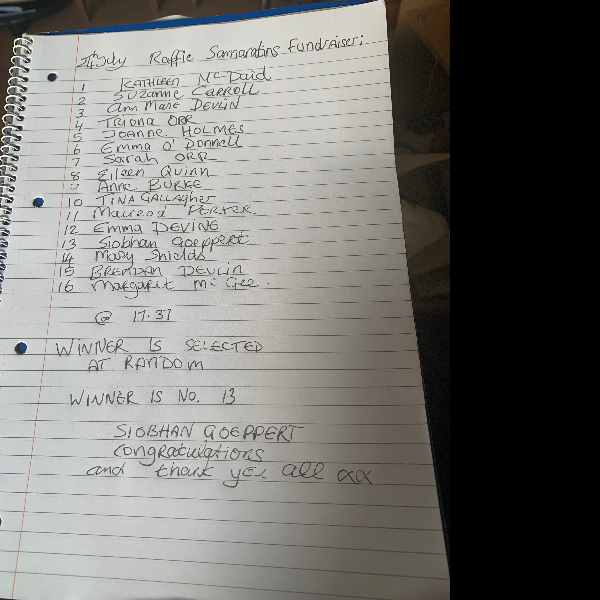 24th July Raffle Samaratins Fundraiser:
1 KATHLEEN McDaid
2 SUZanne CARROLL
3 Ann Marie DEVLIN
4 Triona ORR
5 JOANNE HOLMES
6 Emma O'Donnell
7 Sarah ORR
8 Eileen Quinn
9 Anne BURKE
10 TINA GALLAGHER
11 PORTER
12 Emma DEVINE
13 Siobhan Goeppert
14 Mary Shields
15 BRENDAN DEVLIN
16 Margaret Mc Gee.
@ 17.37
WINNER IS SELECTED
AT RANDOM
WINNER IS NO. 13
SIOBHAN GOEPPERT
Congratulations
and thank you all xx